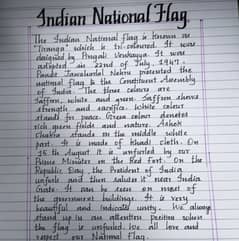 Indian National Flag
The Indian National flag is known as
"Tiranga" which is tri-coloured. It was
designed by Pingali Venkayya. It was
adopted on 22nd of July, 1947.
Pandit Jawaharlal Nehru presented the
national flag to the Constituent Assembly
of India. The three colours are
Saffron, white and green. Saffron shows
strength and sacrifice. White colour
stands for peace. Green colour denotes
rich green fields and nature. Ashok
Chakra stands in the middle white
part. It is made of Khadi cloth. On
15th August it is unfurled by our
Prime Minister on the Red fort. On the
Republic Day the President of India
unfurls and then salutes it near India
Gate. It can be seen on most of
the government buildings. It is very
beautiful and indicate unity. We always
stand up in an attention position when
the flag is unfurled. We all love and
respect our National Flag.